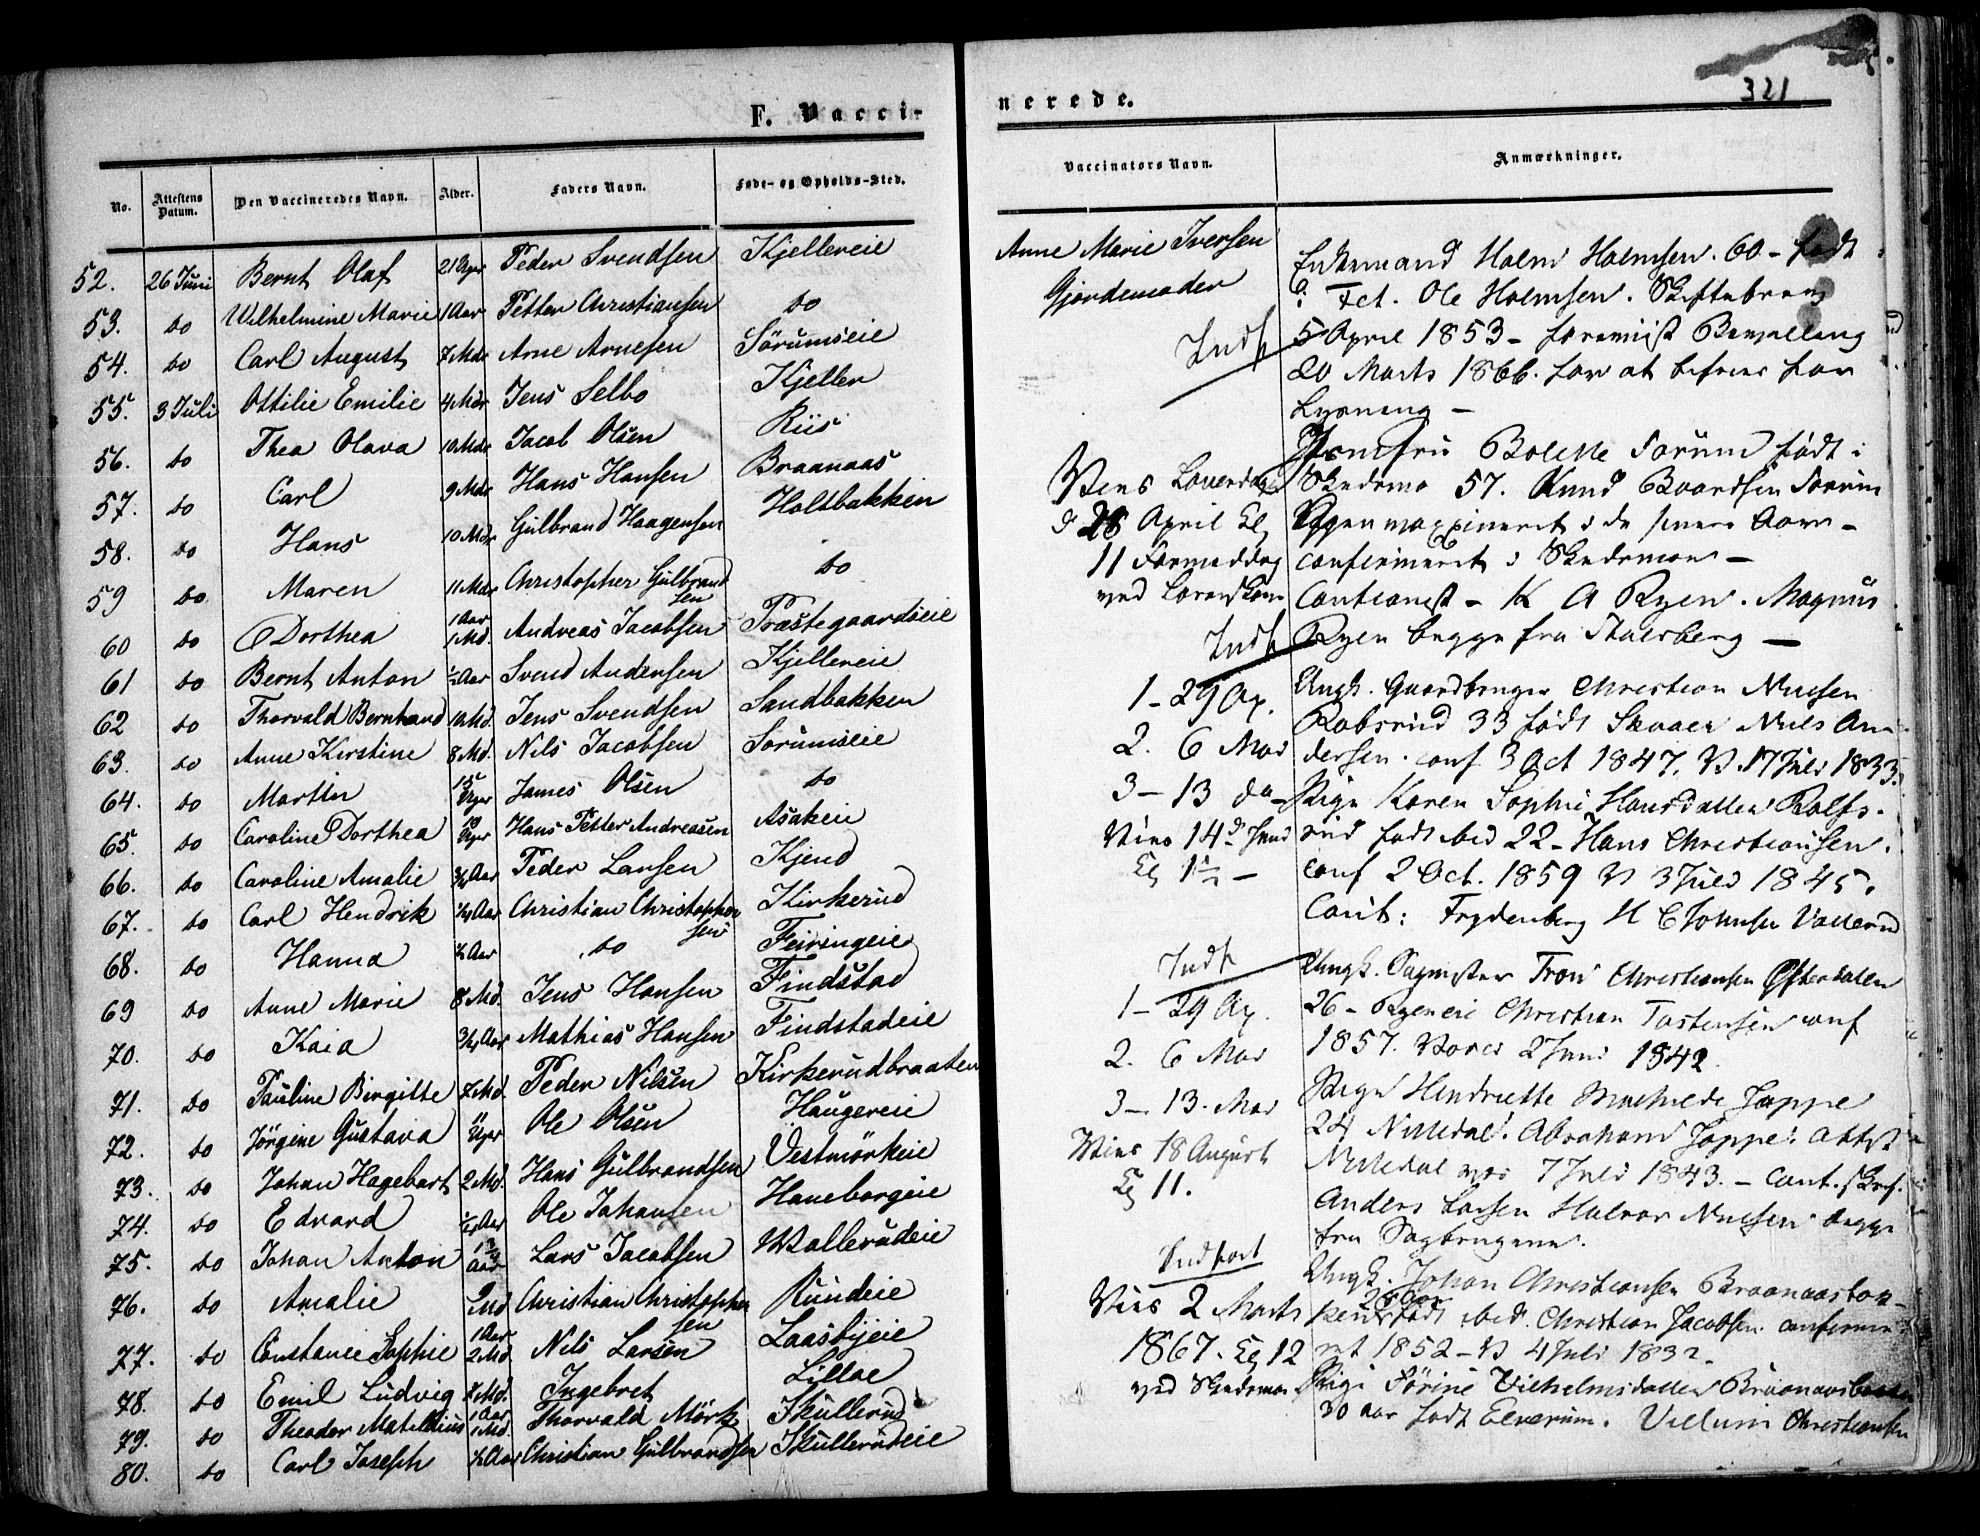 F. Vacci-
No. Attestens Datum. Den Vaccineredes Navn. Alder. Faders Navn. Føde- og Opholds-Sted.
52. 26 Juni Bernt Olaf 21 Uger Peder Svendsen Kjellereie
53. do Wilhelmine Marie 1 Aar Petter Christiansen do
54. do Carl August 7 Mdr Arne Arnesen Sörumseie
55. 3 Juli Ottilie Emilie 4 Mdr Jens Selbo Kjeller
56. do Thea Olava 10 Mdr Jacob Olsen Riis
57. do Carl 9 Mdr Hans Hansen Braanaas
58. do Hans 10 Mdr Gulbrand Haagensen Holtbakken
59 do Maren 11 Mdr Christopher Gulbrandsen do
60 do Dorthea 1 Aar 1 Md. Andreas Jacobsen Præstegaardseie
61 do Bernt Anton ½ Aar Svend Andersen Kjellereie
62 do Thorvald Bernhard 10 Md. Jens Svendsen Sandbakken
63. do Anne Kirstine 8 Md. Nils Jacobsen Sorumseie
64. do Martin 15 Uger James Olsen do
65. do Caroline Dorthea 19 Uger Hans Petter Andreasen Asakeie
66. do Caroline Amalie ¾ Aar Peder Larsen Kjend
67. do Carl Hendrik ¼ Aar Christian Christophersen Kirkerud
68. do Hanna ½ Aar do Feiringeie
69 do Anne Marie 8 Md. Jens Hansen Findstad
70. do Kaia ¾ Aar Mathias Hansen Findstadeie
71. do Pauline Birgitte Md. Peder Nilsen Kirkerudbraaten
72. do Jörgine Gustava 11 Uger Ole Olsen Haugereie
73. do Johan Hagebart 2 Md. Hans Gulbrandsen Vestmörkeie
74. do Edvard Aar Ole Johansen Haneborgeie
75. do Johan Anton Aar Lars Jacobsen Wallerudeie
76. do Amalie 2 Md Christian Christophersen Rundeie
77. do Constance Sophie 1 Aar 2 Md. Nils Larsen Laasbyeie
78. do Emil Ludvig Md. Ingebret Lilloe
79. do Theodor Mathildius 1 Aar 1 Md. Thorvald Mörk Skullerud
80. do Carl Joseph ½ Aar Christian Gulbrandsen Skullerudeie
nerede.
321
Vaccinators Navn. Anmærkninger.
Anne Marie Iversen
Gjordemoder
Indf
Enkemand Halvor Holmsen. 60 - født
Fet. Ole Holmsen. Skiftebrev
5 April 1853 - forevist Bevilling
20 Marts 1866. for at befries for
Lysning -
Vies Løverdag
d 28 April Kl
11 Formiddag
ved Lørenskov
Jomfru Bolette Sørum født i
Skedsmo 57. Knud Baardsen Sørum
Ryen vaxxineret i de senere Aar -
confirmeret i Skedsmo -
Cautionist - K A Ryen. Magnus
Ryen begge fra Stalsberg -
Indf
1 - 29 Ap.
2. 6 Mai
3 - 13 do -
Vies 14d Juni
Kl 1½ -
Ungk. Gaardbruger Christian Nielsen
Robsrud 33 født Skaaer Niels An-
dersen. conf 3 Oct 1847. V. 17 Juli 1833.
Pige Karen Sophie Hansdatter Rolfs-
rud født ibid 22 - Hans Christiansen.
conf 2 Oct. 1859 V 3 Juli 1845.
Caut: Frydenberg H C Johnsen Vallerud
Indf
1 - 29 Ap.
2. 6 Mai
3 - 13. Mai
Vies 18 August
Kl 11.
Ungk. Sagmester Tron Christiansen Østerdalen
26 - Ryeneie Christian Tostensen conf
1857. Vacci 2 Juni 1842.
Pige Hendriette Mathilde Jappe
24 Nittedal. Abraham Jappe. attest
Nittedal vac 7 Juli 1843. - Caut. skrf.
Anders Larsen Halvor Nielsen begge
fra Sagbrugene.
Indført
Vies 2 Marts
1867. Kl 12
ved Skedsmo
Ungk. Johan Christiansen Braanaasbak-
ken 28 Aar født ibid. Christian Jacobsen confirme-
ret 1852 - V 4 Juli 183
Pige Jörine Vilhelmsdatter Braanaasbakken
30 aar født Elverum. Villum Christiansen